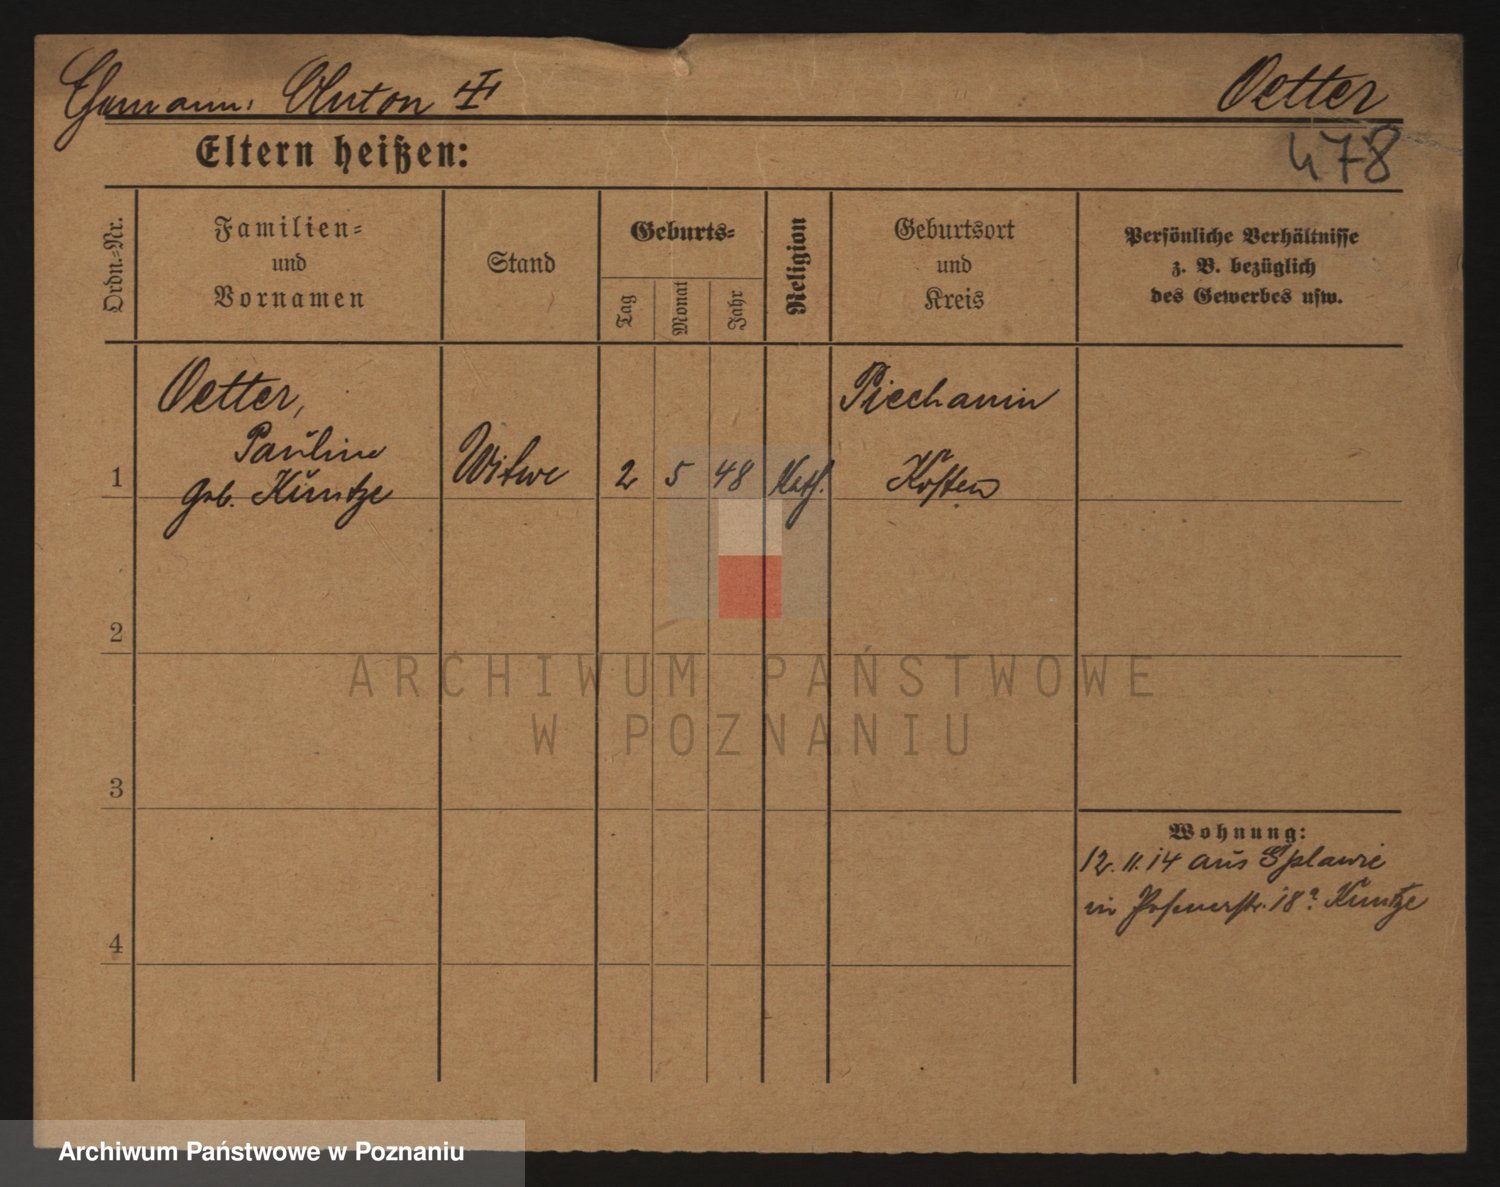 Ehemann: Anton ‡
Oetter
478
Eltern heißen:
Ordn.-Nr.
Familien-
und
Vornamen
Stand
Geburts-
Tag
Monat
Jahr
Religion
Geburtsort
und
Kreis
Persönliche Verhältnisse
z. B. bezüglich
des Gewerbes usw.
Oetter,
Pauline
geb. Kuntze
1
Witwe
2
5
48
Kath.
Piechanin
Kosten
2
3
4
Wohnung:
12.11.14 aus Splawie
in Posenerstr. 18ª Kuntze
ARCHIWUM PAŃSTWOWE
W POZNANIU
Archiwum Państwowe w Poznaniu